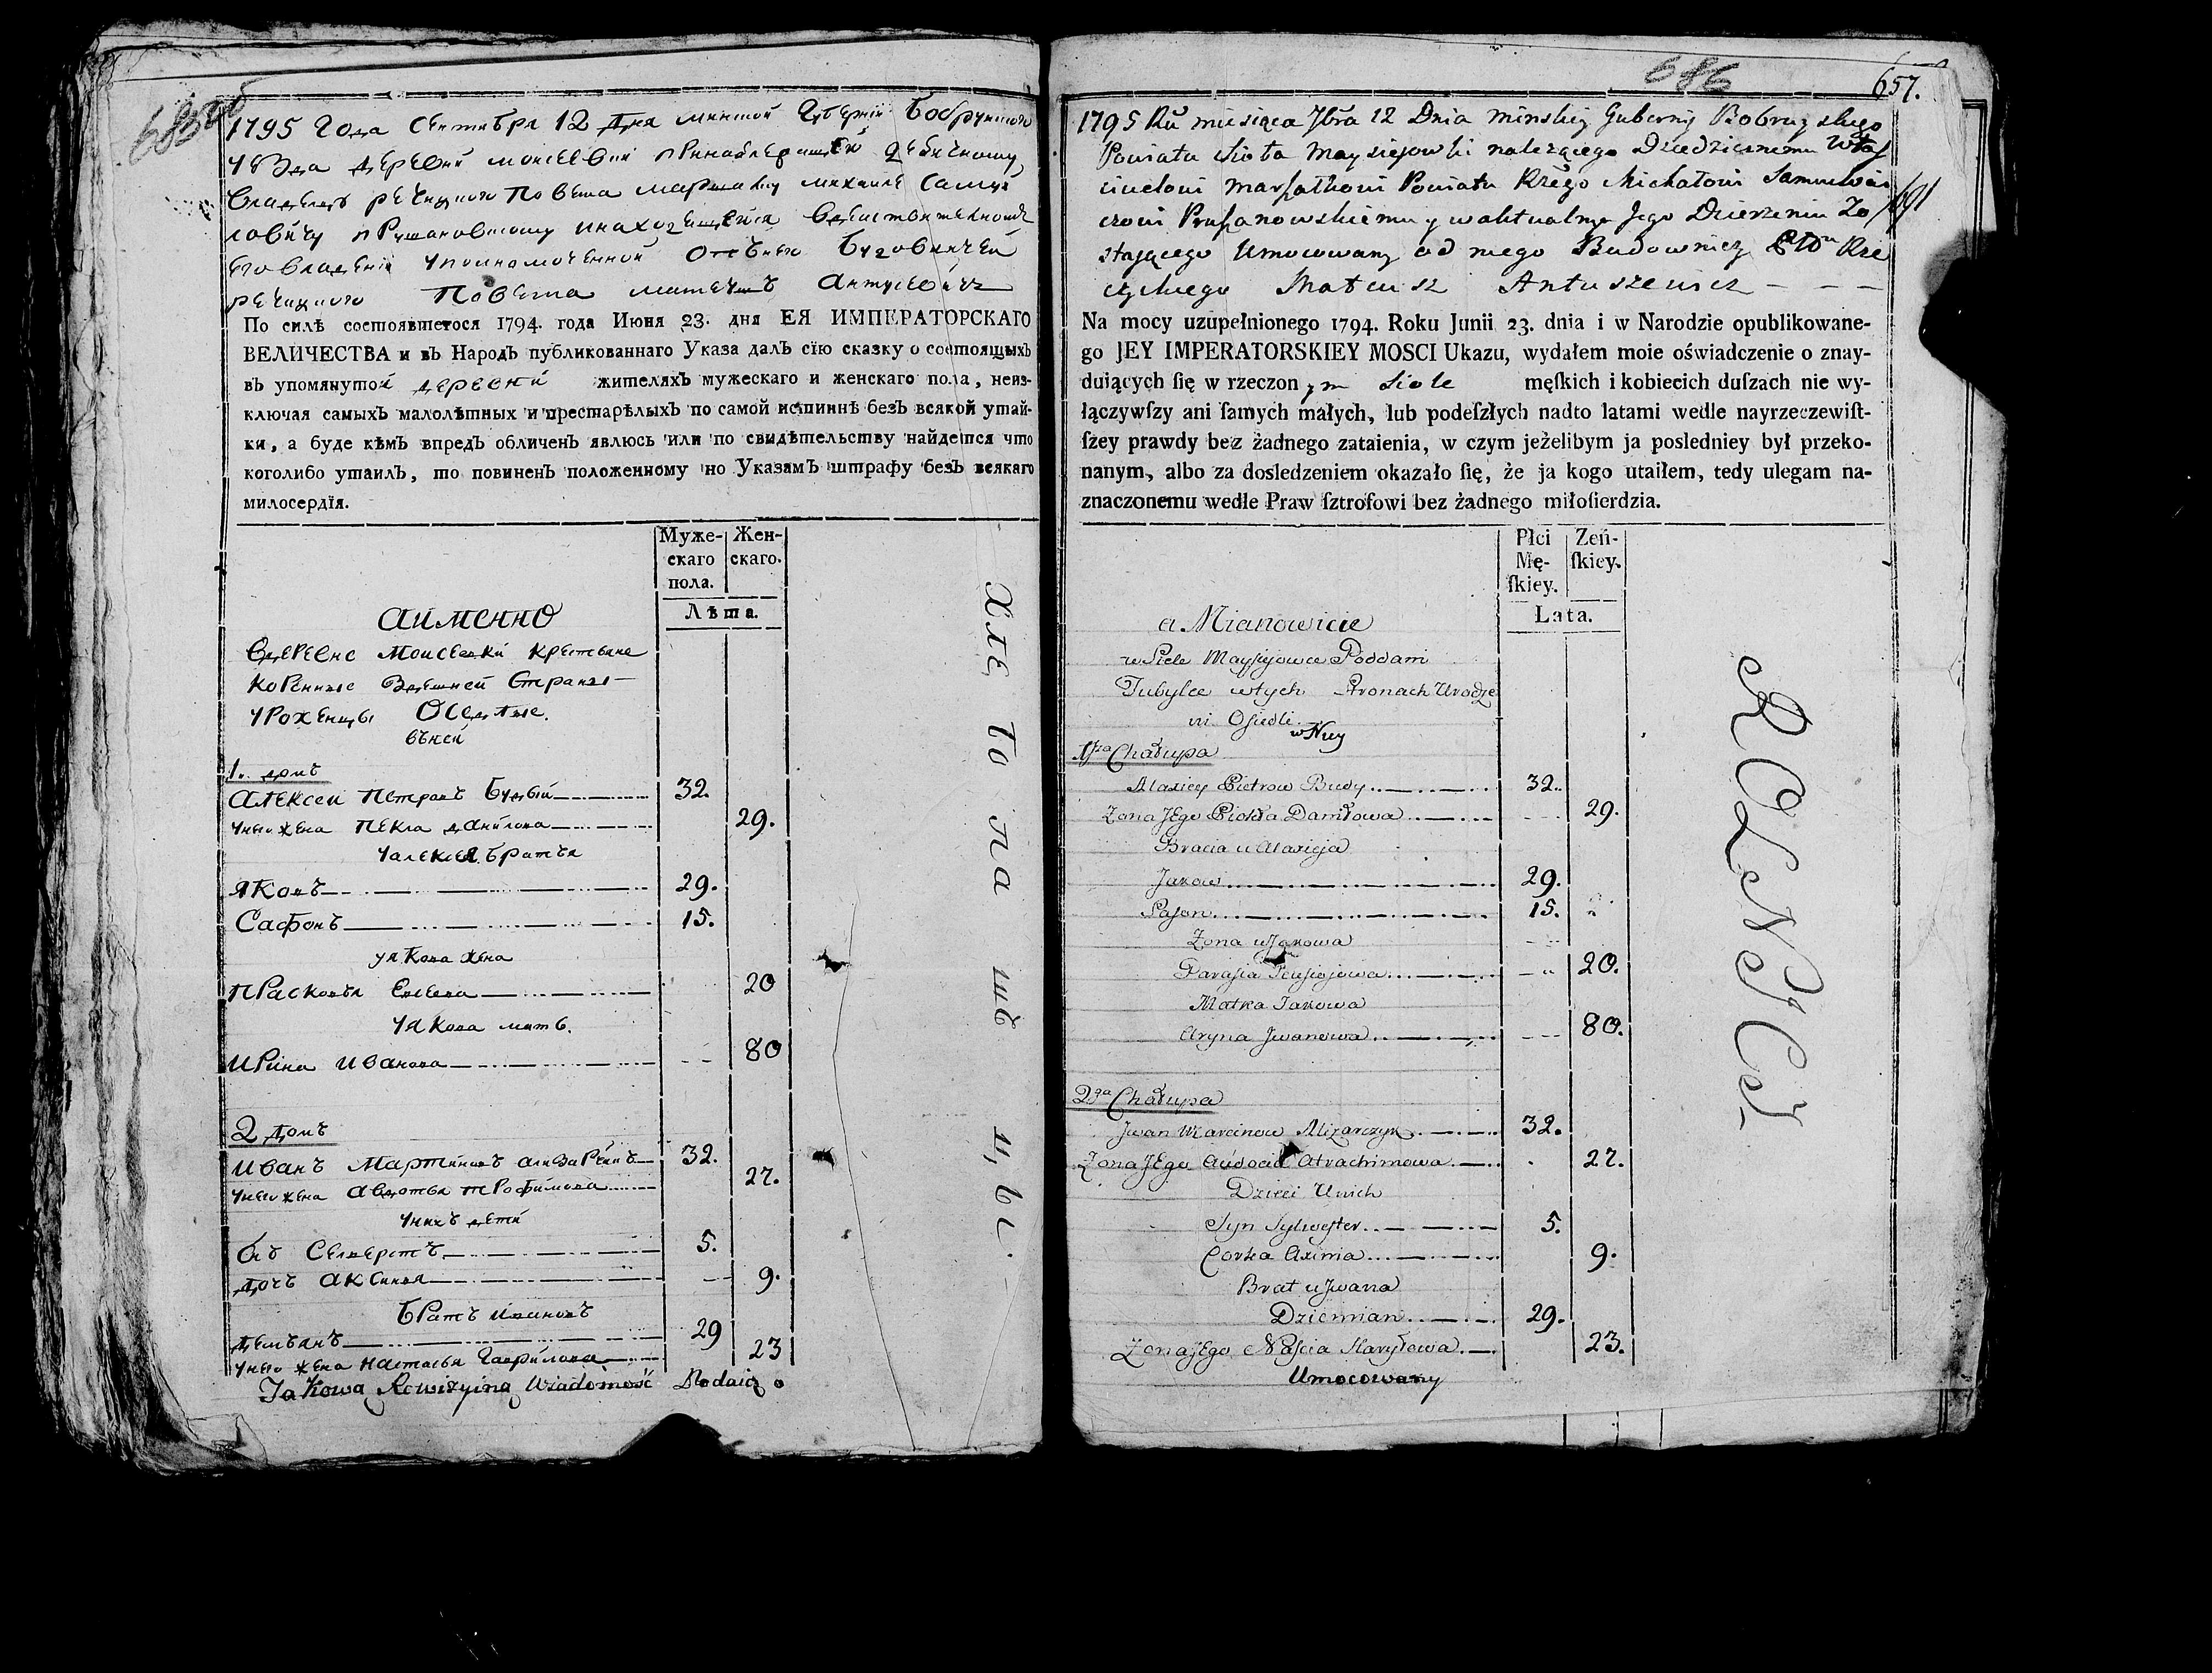 685об
1795 Года Сентября 12 Дня минской Губернии Бобруйского
уезда деревни моисеевки принадлежащей
владельцу речицкого Повета маршалку михайле Самуй
ловичу прушановскому инаходящейся вдействительном
его владении уполномоченной отънего Будовничей
речицкого Повета матеушъ Антушевичъ
По силѣ состоявшегося 1794. года Июня 23. дня ЕЯ ИМПЕРАТОРСКАГО
ВЕЛИЧЕСТВА и въ Народъ публикованнаго Указа далъ сїю сказку о состоящыхъ
въ упомянутой деревни жителяхъ мужескаго и женскаго пола, неиз-
ключая самыхъ малолѣтныхъ и престарѣлыхъ по самой истиннѣ безъ всякой утай-
ки, а буде кѣмъ впредъ обличенъ явлюсь или по свидѣтельству найдется что
коголибо утаилъ, то повиненъ положенному по Указамъ штрафу безъ всякаго
милосердїя.
Муже-скаго пола. Жен-скаго.
Лѣта.
аименно
вдеревне Моисеевки крестьяне
коренные Здешней Страны
уроженцы Оседлые.
внеи
1. домъ
Алексеи Петровъ Будый 32.
унего жена Пекла данилова 29.
уалексея братья
Яковъ 29.
Сафонъ 15.
уякова жена
Прасковья Евсеева 20
уякова мать.
Ирина Иванова 80
2 домъ
Иванъ Мартиновъ ализарчикъ 32.
унего жена авдотья трофимова 27.
унихъ дети
сынъ Селверстъ 5.
дочъ аксинья 9.
братъ ивановъ
демьянъ 29
унего жена настасья Гаврилова 23
Jakową Rewizyiną Wiadomość Podaię
хле бо па шъ ц, ы.
686
657.
691
1795 Ru miesiąca 7bra 12 Dnia minskiey Gubernij Bobruyskiego
Powiatu Sioła Maysiejowki należącego Dziedzicznemu Wła
scicielowi Marszałkowi Powiatu Rzego Michałowi Samuelowi
czowi Pruszanowskiemu y waktualnym Jego Dzierżeniu Zo
stającego Umocowany od niego Budowniczy Pttu Rze
czyckiego Mateusz Antuszewicz
Na mocy uzupełnionego 1794. Roku Junii 23. dnia i w Narodzie opublikowane-
go JEY IMPERATORSKIEY MOSCI Ukazu, wydałem moie oświadczenie o znay-
duiących ſię w rzeczon ym Siole męſkich i kobiecich duſzach nie wy-
łączywſzy ani ſamych małych, lub podeſzłych nadto latami wedle nayrzeczewiſt-
ſzey prawdy bez żadnego zataienia, w czym jeżelibym ja posledniey był przeko-
nanym, albo za dosledzeniem okazało ſię, że ja kogo utaiłem, tedy ulegam na-
znaczonemu wedle Praw ſztrofowi bez żadnego miłoſierdzia.
Płci Mę-ſkiey. Zeń-ſkiey.
Lata.
a Mianowicie
w Siele Maysiejowce Poddani
Tubylce wtych Stronach Urodze
ni Osiedli.
w Niey
1sza Chałupa
Alaxiey Pietrow Budy 32.
Zona JEgo Piokła Daniłowa 29.
Bracia u Alaxieja
Jakow 29.
Safon 15.
Zona u Jakowa
Parasia Jeusiejowa 20.
Matka Jakowa
Aryna Jwanowa 80.
2ga Chałupa
Jwan Marcinow Alizarczyk 32.
Zona JEgo Audocia Atrachimowa 27.
Dzieci Unich
Syn Sylwester 5.
Corka Axinia 9.
Brat u Jwana
Dziemian 29.
Zona JEgo Nascia Haryłowa 23.
Umocowany
ROLNICY